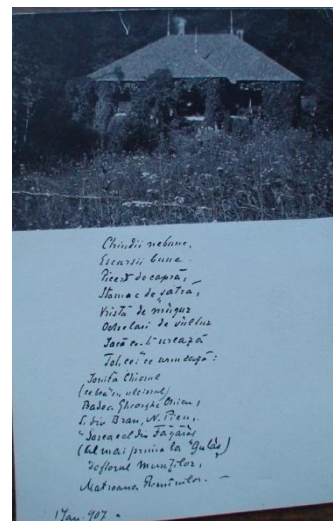 Chindii nebune,
Escursii bune.
Picer de capră,
Stomac de șatră,
Vrîstă de
Ochelari de vultur
Iacă ce-ți urează
Toți cei ce urmează:
Ioniță Chiorul
(cel cu ulciorul)
Badea Gheorghe
S. din Bran, N. Pien,
din Făgăraș
(Cel mai prima la "Gulaș)
Doftorul Munților,
Matroana Românilor. –
1 Ian. 907.